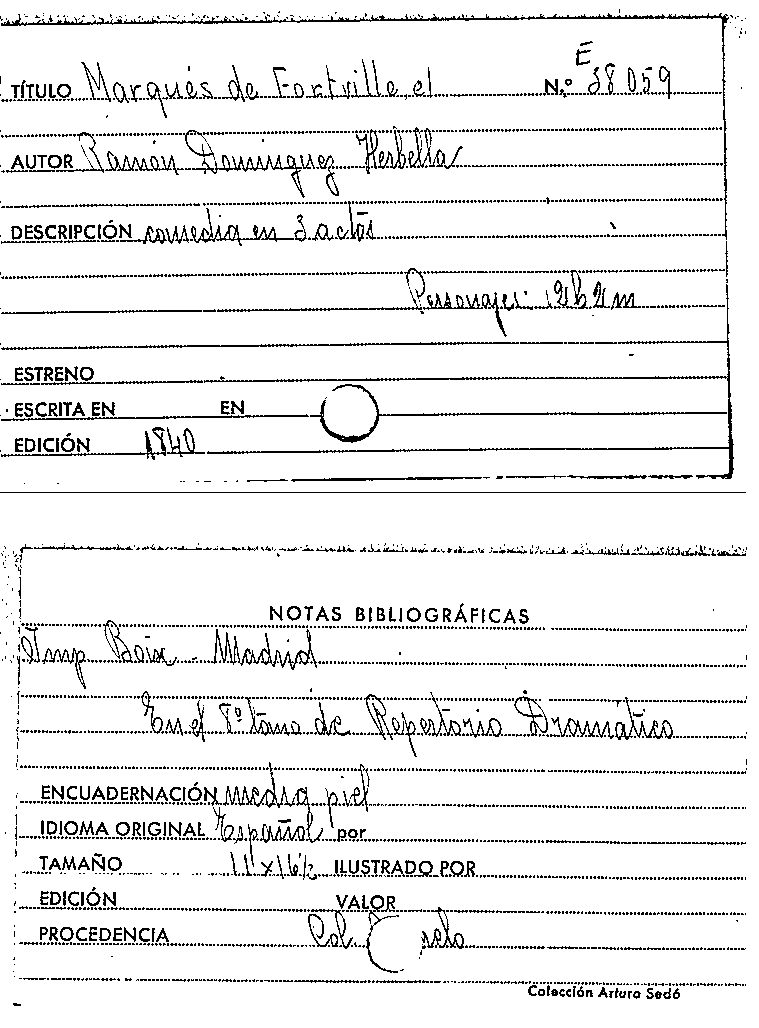 TÍTULO Marqués de Fortville, el N.º E 38059
AUTOR Ramón Dominguez Herbella
DESCRIPCIÓN comedia en 3 actos
Personajes: 12h 2m
ESTRENO
ESCRITA EN EN
EDICIÓN 1840
NOTAS BIBLIOGRÁFICAS
Imp Boix - Madrid
En el 8º tomo de Repertorio Dramático
ENCUADERNACIÓN media piel
IDIOMA ORIGINAL Español por
TAMAÑO 11 x 16½ ILUSTRADO POR
EDICIÓN VALOR
PROCEDENCIA Col.
Colección Arturo Sedó